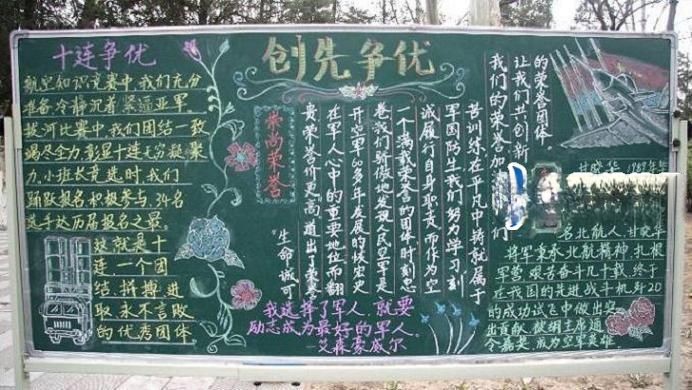 创先争优
十连争优
航空知识竞赛中,我们充分
准备,冷静沉着,紧逼亚军
拔河比赛中,我们团结一致
竭尽全力,彰显十连无穷凝聚
力,小班长竞选时,我们
踊跃报名积极参与,34名
选手达历届报名之最。
这就是十
连一个团
结拼搏进
取永不言败
的优秀团体
崇尚荣誉
“生命诚可
贵,荣誉价更高”道出了荣誉
在军人心中的重要地位,而翻
开空军60多年发展的候宏史
卷,我们骄傲地发现人民空军是
一个满载荣誉的团体,时刻忠
诚履行自身职责,而作为空
军国防生,我们努力学习,刻
苦训练,在平凡中铸就属于
我们的荣誉加
们
让我们共创新
的荣誉团体。
我选择了军人,就要
励志成为最好的军人。
艾森豪威尔
甘晓华 1989年
名北航人甘晓华
将军秉承北航精神,扎根
军营,艰苦奋斗几十载,终于
在我国的先进战斗机歼20
的成功试飞中做出突
出贡献,被胡主席通
令嘉是,成为空军英雄